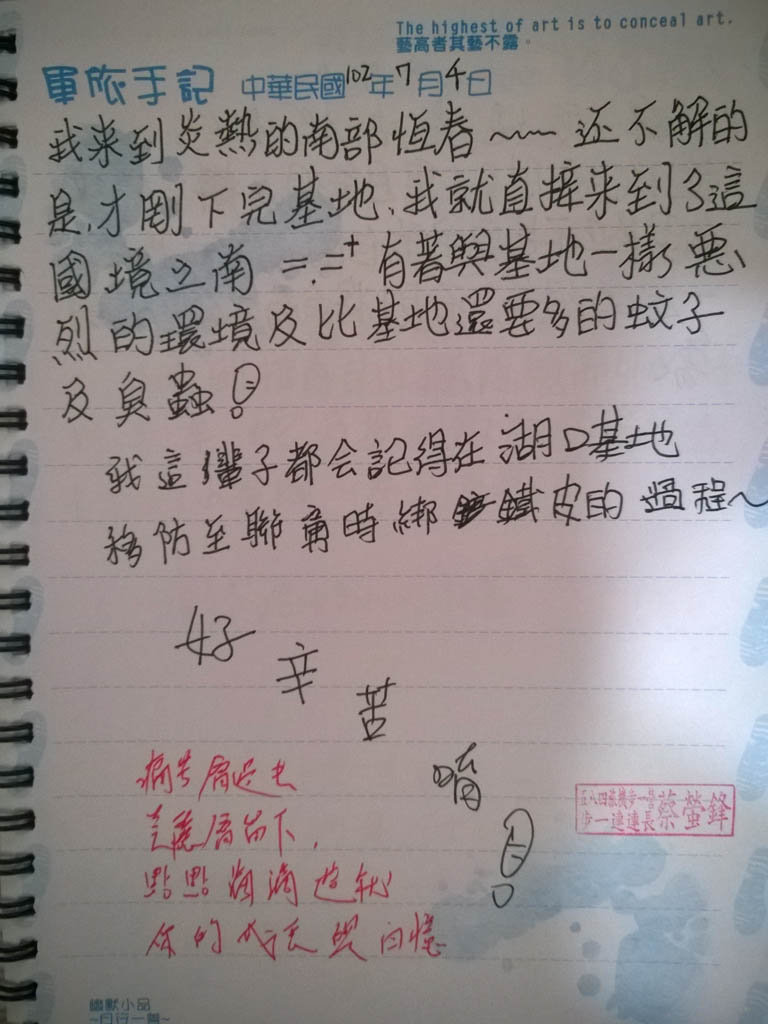 The highest of art is to conceal art.
藝高者其藝不露。
軍旅手記 中華民國102年7月4日
我来到炎熱的南部恆春~~~ 还不解的
是,才剛下完基地、我就直接来到了這
國境之南 =.=+ 有著與基地一樣惡
烈的環境及比基地還要多的蚊子
及臭蟲!
我這輩子都会記得在湖口基地
移防至聯勇時綁鐵皮的過程~
好
辛
苦
唷
!
痛苦會過去
美麗會留下,
點點滴滴造就
你的成長與回憶
五八四旅機步一營
步一連連長 蔡螢鋒
幽默小品
~日行一篇~